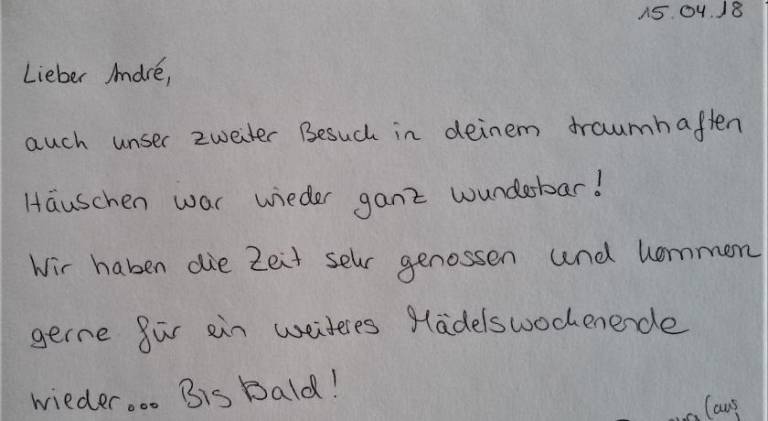 15.04.18
Lieber André,
auch unser zweiter Besuch in deinem traumhaften
Häuschen war wieder ganz wunderbar!
Wir haben die Zeit sehr genossen und kommen
gerne für ein weiteres Mädelswochenende
wieder... Bis bald!
(aus